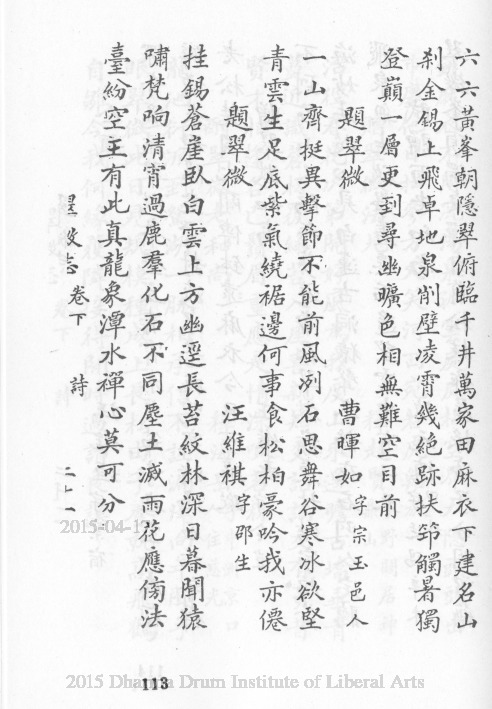 六六黃峯朝隱翠俯臨千井萬家田麻衣下建名山
刹金錫上飛卓地泉削壁凌霄幾絕跡扶筇觸暑獨
登巔一層更到尋幽曠色相無難空目前
題翠微 曹暉如字宗玉邑人
一山齊挺異擊節不能前風冽石思舞谷寒冰欲堅
青雲生足底紫氣繞裾邊何事食松柏豪吟我亦僊
題翠微 汪維祺字邵生
挂錫蒼崖臥白雲上方幽逕長苔紋林深日暮聞猿
嘯梵响清宵過鹿羣化石不同塵土滅雨花應傍法
臺紛空王有此真龍象潭水禪心莫可分
卷下 詩 二十一
113
2015-04-17
2015 Dharma Drum Institute of Liberal Arts